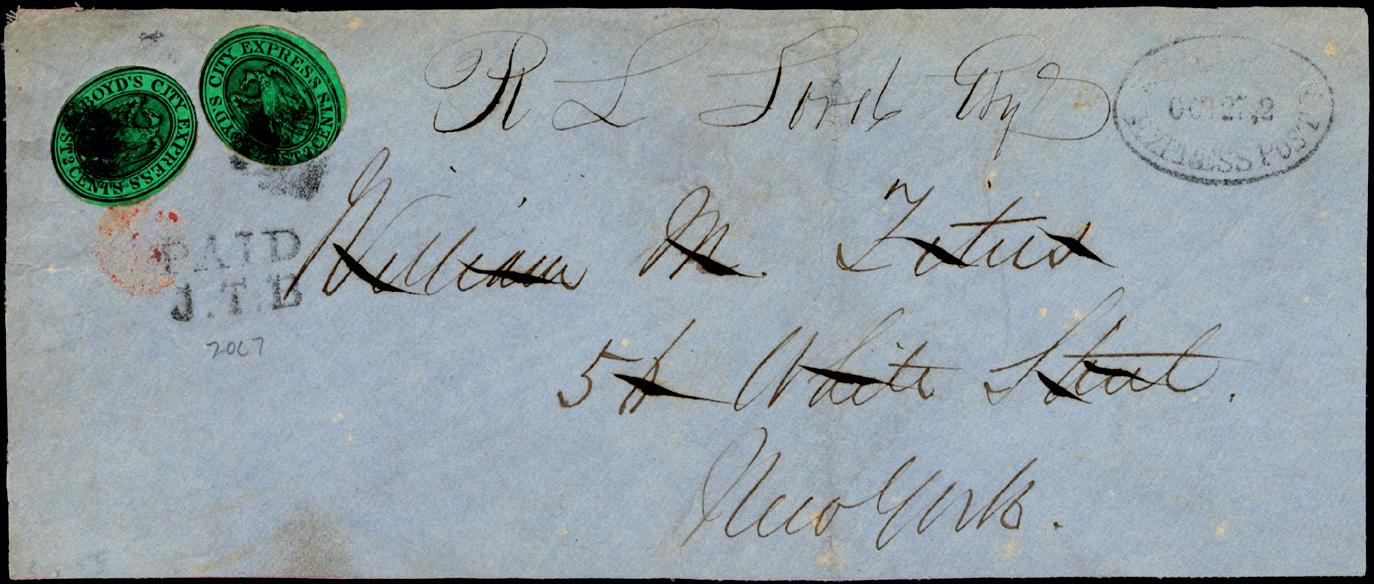 BOYD'S CITY EXPRESS POST 2 CENTS.
BOYD'S CITY EXPRESS POST 2 CENTS
R L Lord Esqr
OCT 27, 2
EXPRESS POST
PAID
J.T.B
2067
William M. Titus
White Street.
New York.